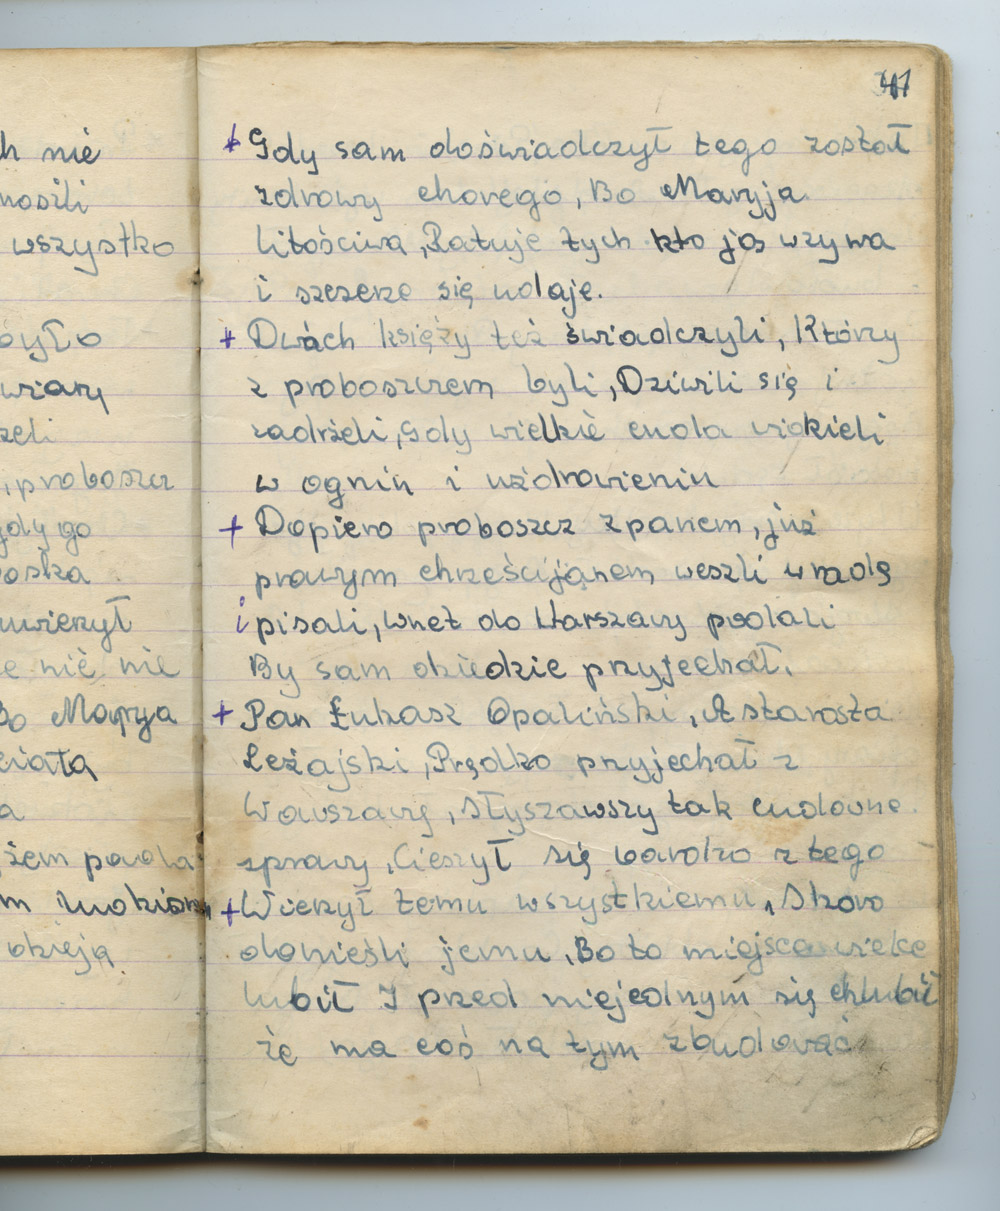 41
h nie
nosili
wszystko
było
wiary
zeli
, proboszcz
gdy go
oska
uwierzył
e nie nie
Bo Maryja
ciała
a
żem powola
m
+ Gdy sam doświadczył tego został
zdrowy chorego, Bo Maryja
litościwa, Ratuje tych kto ją wzywa
i szczerze się udaje.
+ Dwóch księży też świadczyli, Którzy
z proboszczem byli, Dziwili się i
zadrżeli, Gdy wielkie cuda widzieli
w ogniu i uzdrowieniu
+ Dopiero proboszcz z panem, już
prawym chrześcijanem weszli w radę
i pisali, wnet do Warszawy podali
By sam do przyjechał.
+ Pan Łukasz Opaliński, A starosta
Leżajski, Prędko przyjechał z
Warszawy, słyszawszy tak cudowne
sprawy, Cieszył się bardzo z tego
+ Wierzył temu wszystkiemu, Skoro
donieśli jemu, Bo to miejsce wielce
lubił I przed niejednym się chlubił
że ma coś na tym zbudować